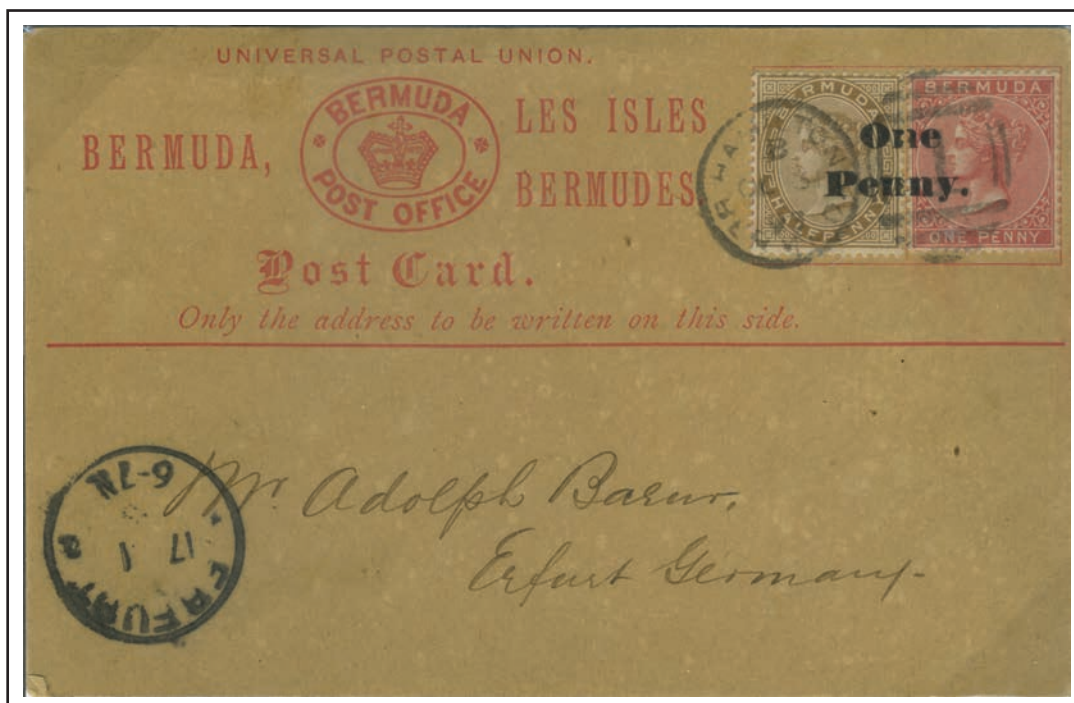 UNIVERSAL POSTAL UNION.
BERMUDA,
BERMUDA
POST OFFICE
LES ISLES
BERMUDES
BERMUDA
HALFPENNY
BERMUDA
ONE PENNY
One
Penny.
HAMILTON
Post Card.
Only the address to be written on this side.
Mr. Adolph
Erfurt Germany.
ERFURT
17 1
6-7N